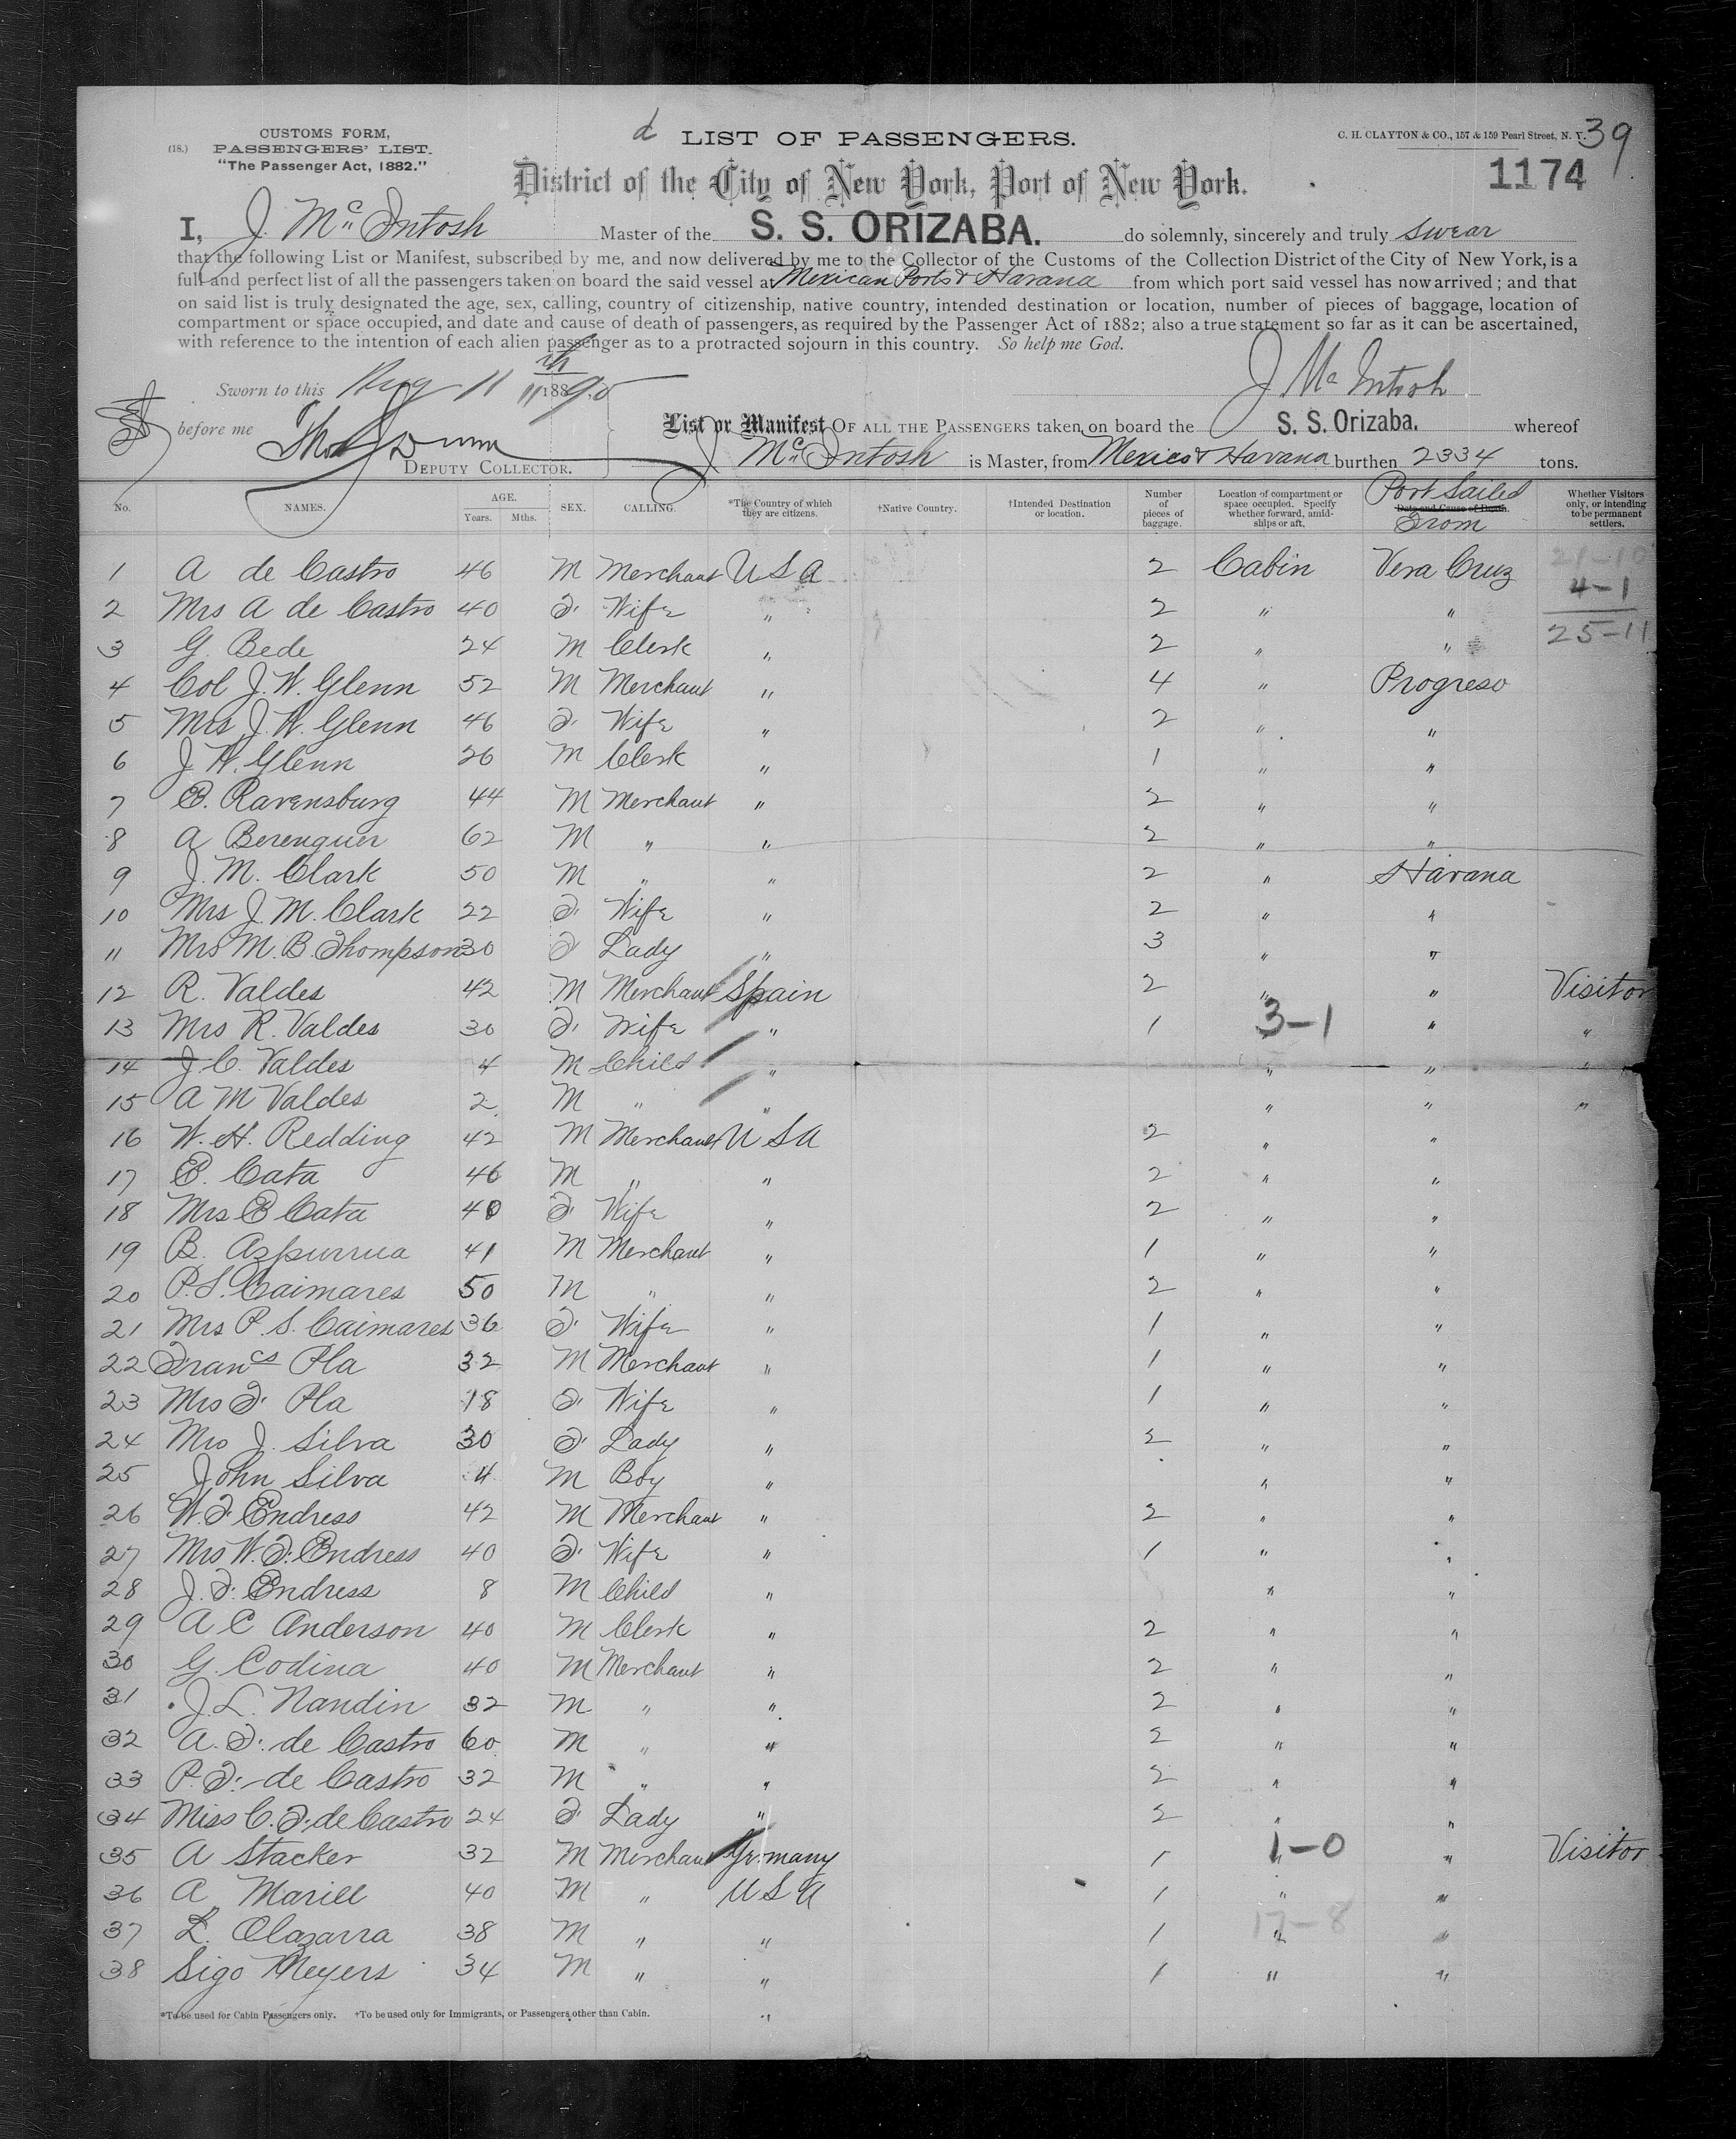 CUSTOMS FORM,
(18.) PASSENGERS' LIST.
"The Passenger Act, 1882."
d LIST OF PASSENGERS.
C. H. CLAYTON & CO., 157 & 159 Pearl Street, N. Y.
39
1174
District of the City of New York, Port of New York.
I, J. Mc Intosh Master of the S. S. ORIZABA. do solemnly, sincerely and truly swear
that the following List or Manifest, subscribed by me, and now delivered by me to the Collector of the Customs of the Collection District of the City of New York, is a
full and perfect list of all the passengers taken on board the said vessel at Mexican Ports & Havana from which port said vessel has now arrived; and that
on said list is truly designated the age, sex, calling, country of citizenship, native country, intended destination or location, number of pieces of baggage, location of
compartment or space occupied, and date and cause of death of passengers, as required by the Passenger Act of 1882; also a true statement so far as it can be ascertained,
with reference to the intention of each alien passenger as to a protracted sojourn in this country. So help me God.
Sworn to this Aug 11 th 1890
J Mc Intosh
before me Thos Dunn
DEPUTY COLLECTOR.
List or Manifest OF ALL THE PASSENGERS taken on board the S. S. Orizaba. whereof
J Mc Intosh is Master, from Mexico & Havana burthen 2334 tons.
No. NAMES. AGE. Years. Mths. SEX. CALLING. *The Country of which they are citizens. †Native Country. †Intended Destination or location. Number of pieces of baggage. Location of compartment or space occupied. Specify whether forward, amidships or aft. Date and Cause of Death. Port Sailed From Whether Visitors only, or intending to be permanent settlers.
1 A de Castro 46 M Merchant U S A 2 Cabin Vera Cruz 21-10
4-1
2 Mrs A de Castro 40 F Wife " 2 " "
25-11
3 G. Bede 24 M Clerk " 2 " "
4 Col J. W. Glenn 52 M Merchant " 4 " Progreso
5 Mrs J. W. Glenn 46 F Wife " 2 " "
6 J W. Glenn 26 M Clerk " 1 " "
7 E. Ravensburg 44 M Merchant " 2 " "
8 A Berenguer 62 M " " 2 " "
9 J. M. Clark 50 M " " 2 " Havana
10 Mrs J. M. Clark 22 F Wife " 2 " "
11 Mrs M. B. Thompson 30 F Lady " 3 " "
12 R. Valdes 42 M Merchant Spain 2 " " Visitor
13 Mrs R. Valdes 30 F Wife " 1 3-1 " "
14 J. C. Valdes 4 M Child " " " "
15 A M Valdes 2 M " " " " "
16 W. H. Redding 42 M Merchant U S A 2 " "
17 E. Cata 46 M " " 2 " "
18 Mrs E Cata 40 F Wife " 2 " "
19 B. Azpurrua 41 M Merchant " 1 " "
20 P. S. Caimares 50 M " " 2 " "
21 Mrs P. S. Caimares 36 F Wife " 1 " "
22 Francs Pla 32 M Merchant " 1 " "
23 Mrs F. Pla 18 F Wife " 1 " "
24 Mrs J. Silva 30 F Lady " 2 " "
25 John Silva 4 M Boy " " "
26 W. F. Endress 42 M Merchant " 2 " "
27 Mrs W. F. Endress 40 F Wife " 1 " "
28 J. F. Endress 8 M Child " " "
29 A C Anderson 40 M Clerk " 2 " "
30 G. Codina 40 M Merchant " 2 " "
31 J. L. Nandin 32 M " " 2 " "
32 A. F. de Castro 60 M " " 2 " "
33 P. F. de Castro 32 M " " 2 " "
34 Miss C. F. de Castro 24 F Lady " 2 " "
35 A Stacker 32 M Merchant Germany 1 1-0 " " Visitor
36 A Marill 40 M " U S A 1 " "
17-8
37 L. Olazarra 38 M " " 1 " "
38 Sigo Meyers 34 M " " 1 " "
*To be used for Cabin Passengers only. †To be used only for Immigrants, or Passengers other than Cabin. "